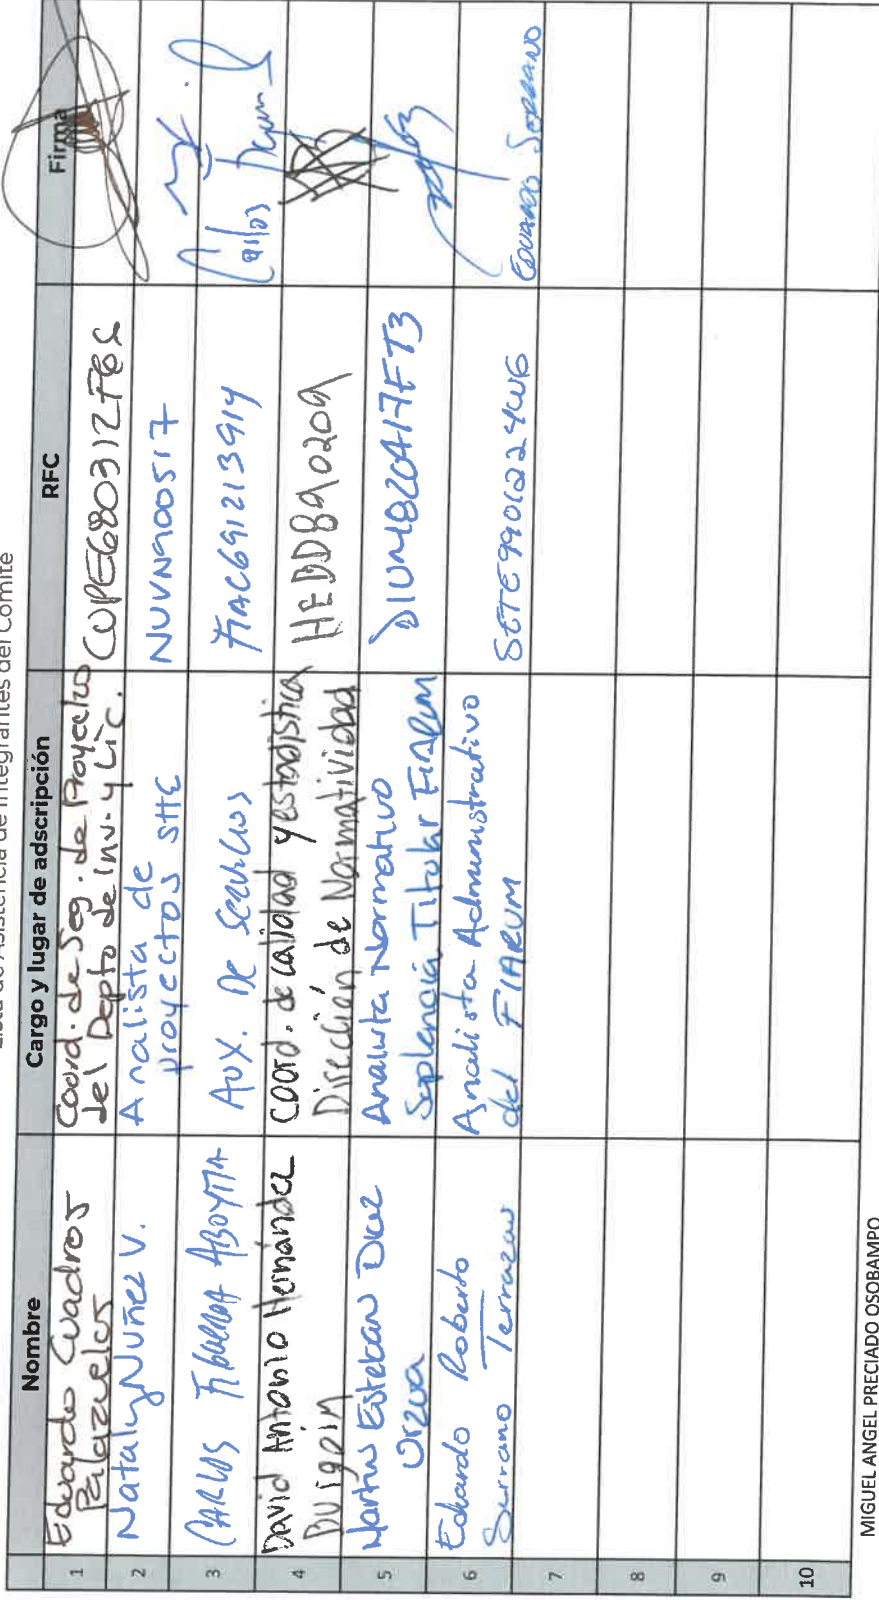 Lista de Asistencia de Integrantes del Comité
Nombre Cargo y lugar de adscripción RFC Firma
1 Eduardo Cuadros Palazuelos
Coord. de Seg. de Proyectos
del Depto de Inv. y Lic.
CUPE680312F86
2 Nataly Nuñez V.
Analista de
proyectos SHE
NUVN900517
3 CARLOS FIGUEROA ABOYTIA
AUX. DE SERVICIOS
FIAC691213914
Carlos Figueroa
4 David Antonio Hernández
Durgoin
Coord. de calidad y estadistica
Dirección de Normatividad
HEDD890209
5 Martín Esteban Diaz
Urzua
Analista Normativo
Suplencia Titular FIARUM
DIUM820417FT3
6 Eduardo Roberto
Serrano Terrazas
Analista Administrativo
del FIARUM
SETE9901224W6
EDUARDO SERRANO
7
8
9
10
MIGUEL ANGEL PRECIADO OSOBAMPO